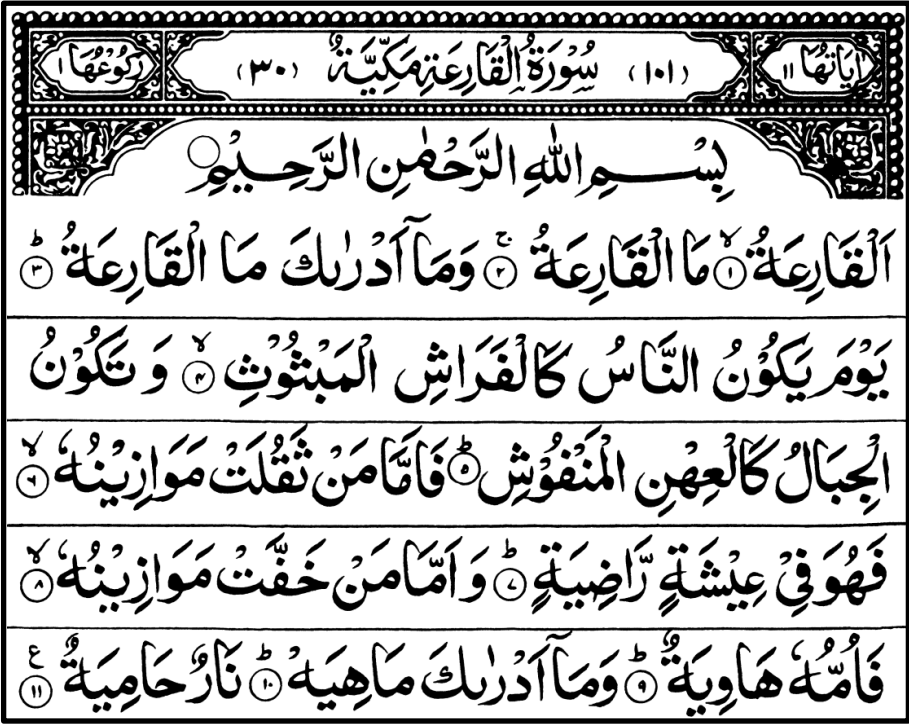 اٰيَاتُهَا ١١ (١٠١) سُوْرَةُ الْقَارِعَةِ مَكِّيَّةٌ (٣٠) رُكُوْعُهَا ١
بِسْمِ اللّٰهِ الرَّحْمٰنِ الرَّحِيْمِ
اَلْقَارِعَةُ ۙ﴿١﴾ مَا الْقَارِعَةُ ۚ﴿٢﴾ وَمَآ اَدْرٰىكَ مَا الْقَارِعَةُ ؕ﴿٣﴾
يَوْمَ يَكُوْنُ النَّاسُ كَالْفَرَاشِ الْمَبْثُوْثِ ۙ﴿٤﴾ وَ تَكُوْنُ
الْجِبَالُ كَالْعِهْنِ الْمَنْفُوْشِ ؕ﴿٥﴾ فَاَمَّا مَنْ ثَقُلَتْ مَوَازِيْنُهٗ ۙ﴿٦﴾
فَهُوَ فِيْ عِيْشَةٍ رَّاضِيَةٍ ؕ﴿٧﴾ وَ اَمَّا مَنْ خَفَّتْ مَوَازِيْنُهٗ ۙ﴿٨﴾
فَاُمُّهٗ هَاوِيَةٌ ؕ﴿٩﴾ وَمَآ اَدْرٰىكَ مَاهِيَهْ ؕ﴿١٠﴾ نَارٌ حَامِيَةٌ ﴿١١﴾ ع